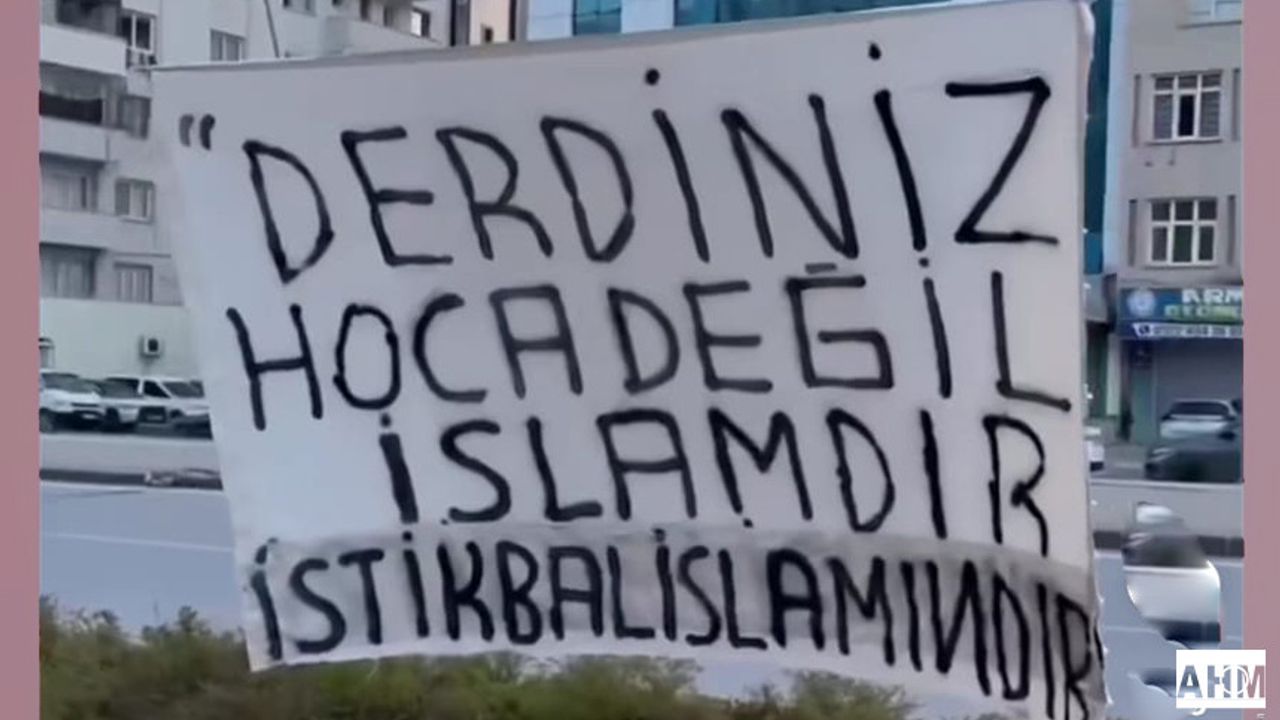 "DERDİNİZ
HOCA DEĞİL
İSLAMDIR
İSTİKBAL İSLAMINDIR
ARM
AHM